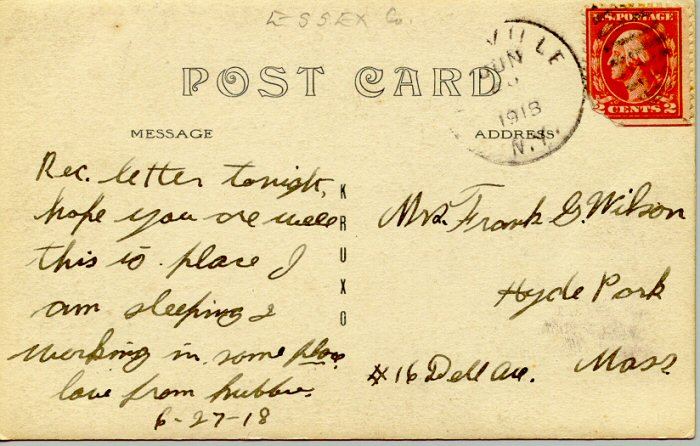 ESSEX Co.
POST CARD
VILLE
JUN
1918
N.Y.
U.S. POSTAGE
2 CENTS 2
MESSAGE
ADDRESS
Rec. letter tonight,
hope you are well
this is place I
am sleeping &
working in some place
love from hubbie.
6-27-18
KRUXO
Mrs. Frank G. Wilson
Hyde Park
#16 Dell Ave. Mass.